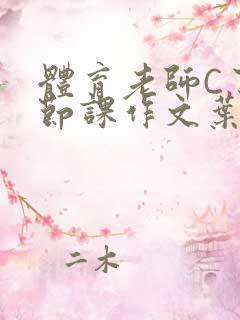 體育老師C
節課作文葉
二木